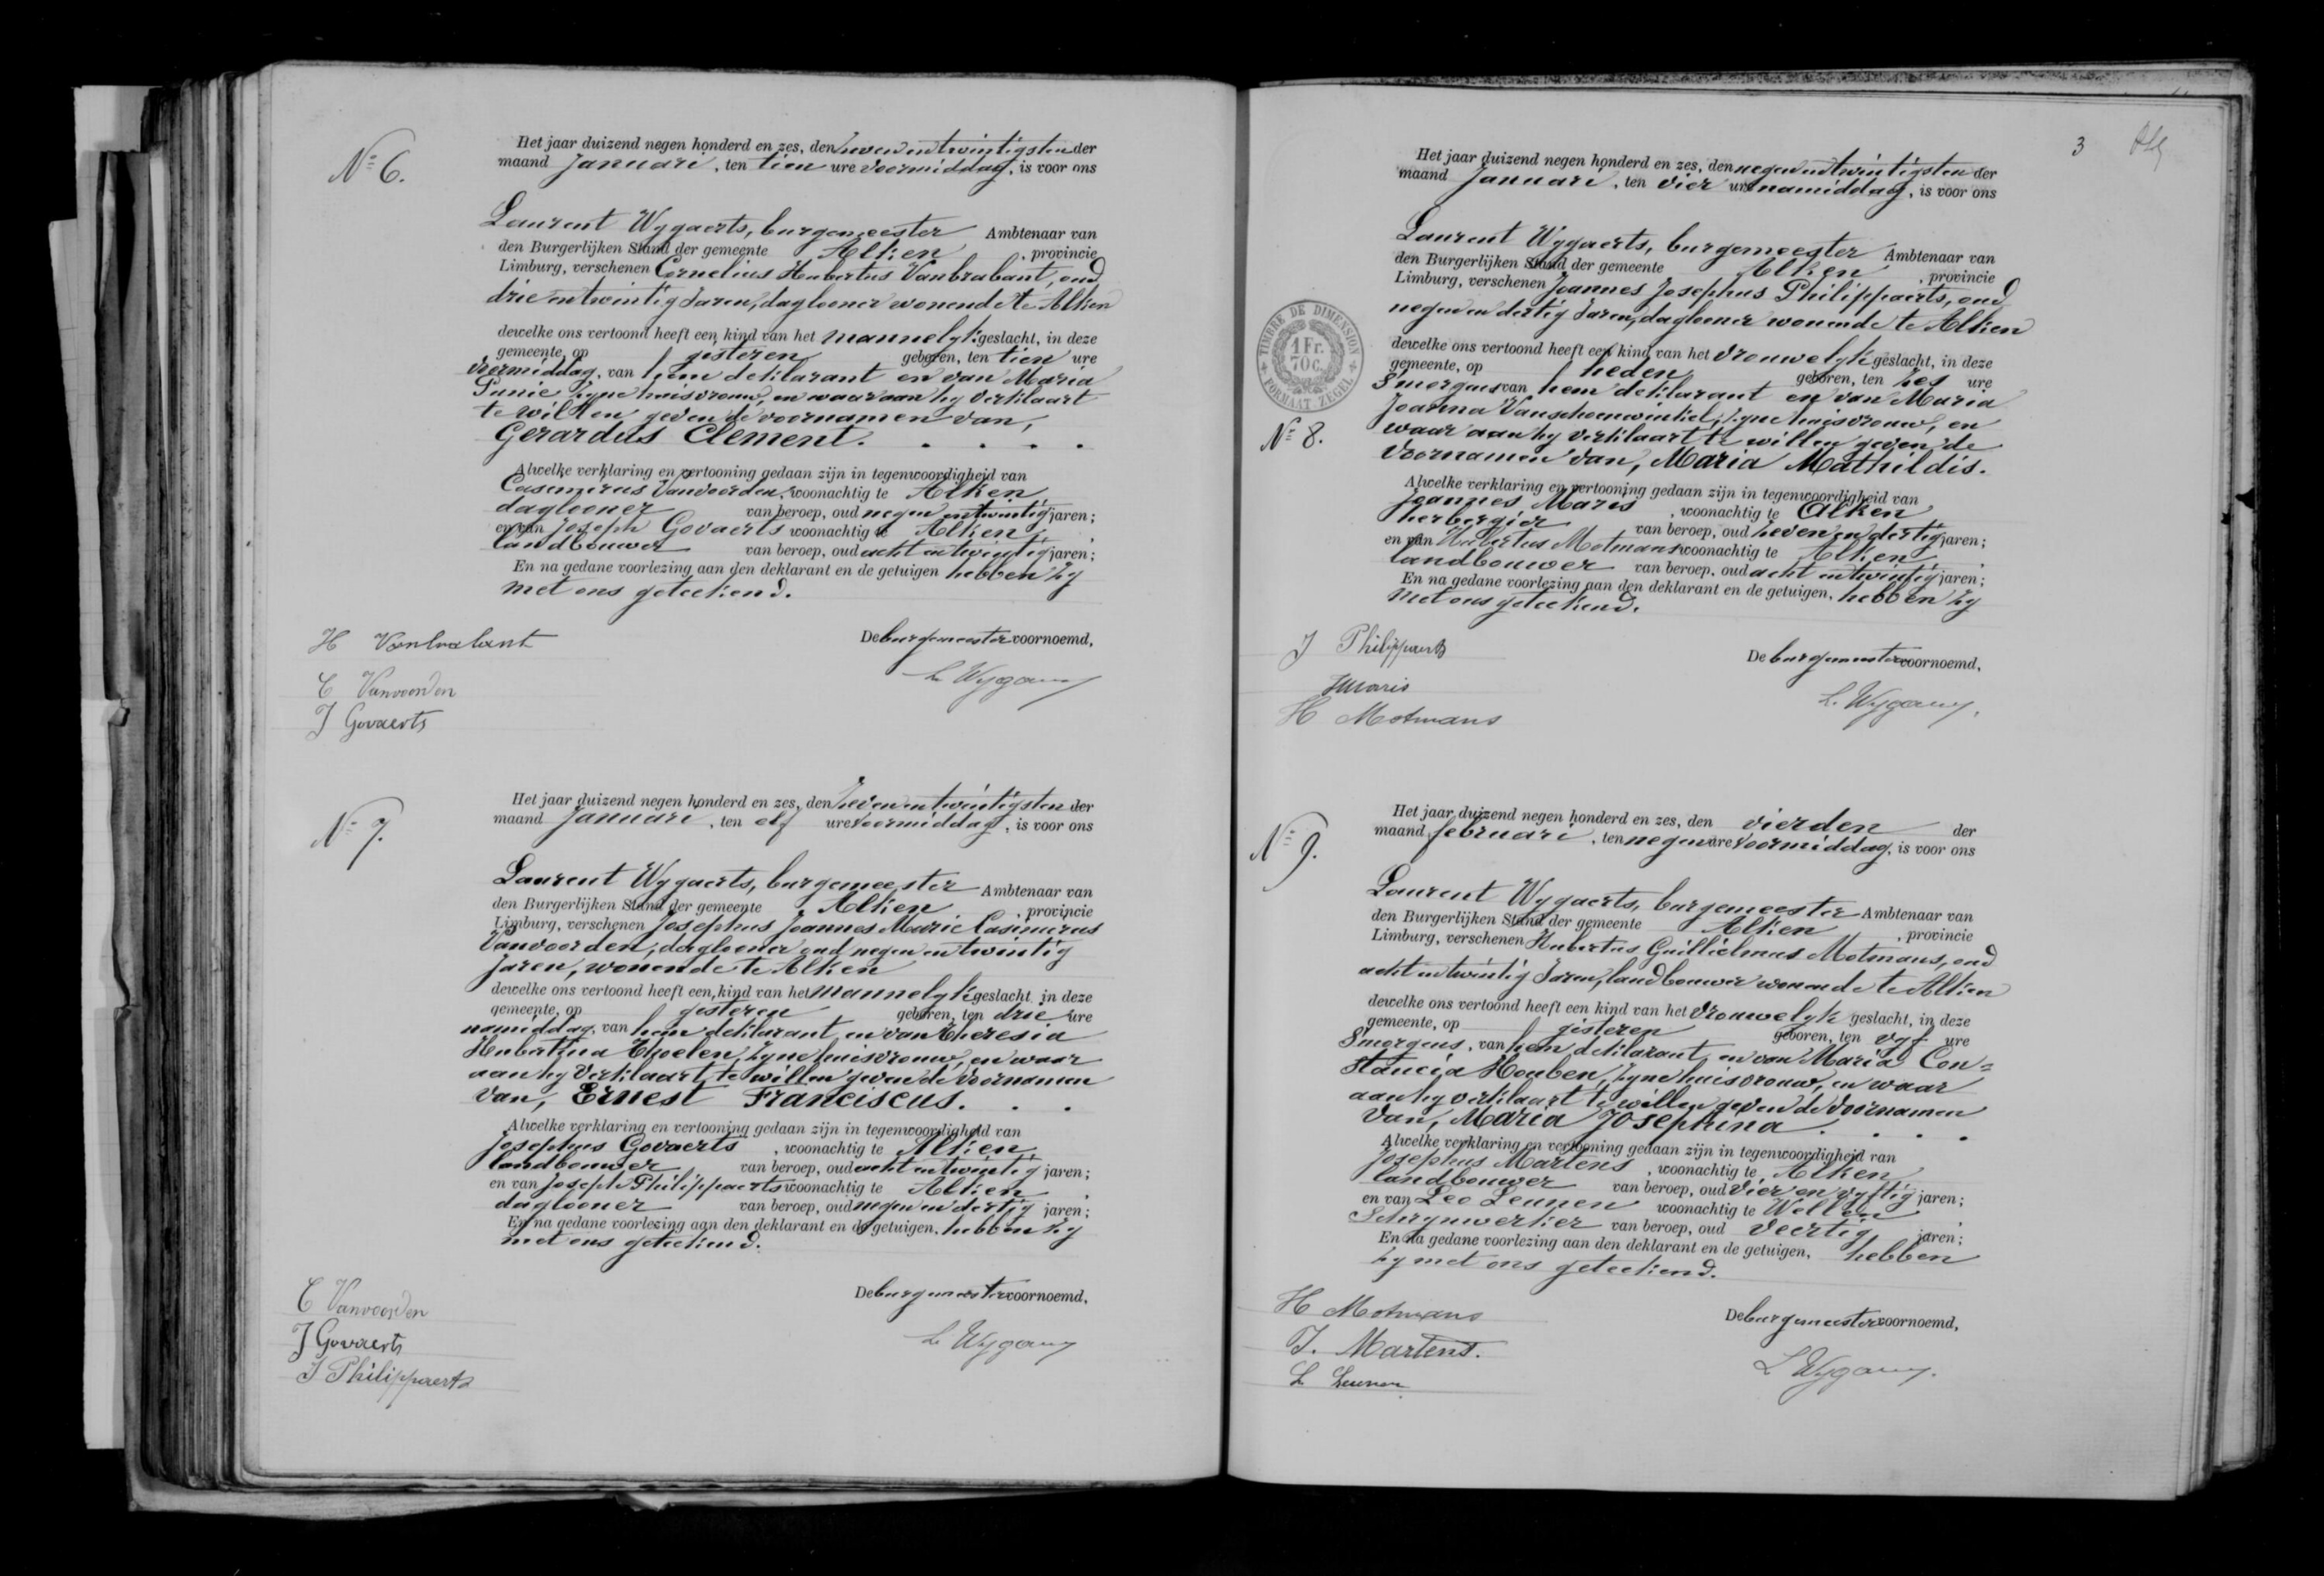 Nº 6.
Het jaar duizend negen honderd en zes, den zeven entwintigsten der
maand Januari, ten tien ure voormiddag, is voor ons
Laurent Wygaerts, burgemeester Ambtenaar van
den Burgerlijken Stand der gemeente Alken, provincie
Limburg, verschenen Cornelius Hubertus Vanbrabant, oud
drie entwintig Jaren, daglooner wonende te Alken
dewelke ons vertoond heeft een kind van het mannelyk geslacht, in deze
gemeente, op gisteren geboren, ten tien ure
voormiddag, van hem deklarant en van Maria
zyne huisvrouw, en waaraan hy verklaart
te willen geven de voornamen van,
Gerardus Clement. . . . .
Alwelke verklaring en vertooning gedaan zijn in tegenwoordigheid van
Casimirus Vanvoorden, woonachtig te Alken
daglooner van beroep, oud negen entwintig jaren;
en van Joseph Govaerts woonachtig te Alken
landbouwer van beroep, oud acht entwintig jaren;
En na gedane voorlezing aan den deklarant en de getuigen hebben zy
met ons geteekend.
De burgemeester voornoemd,
H Vanbrabant
L. Wygaerts
C Vanvoorden
J Govaerts
Nº 7.
Het jaar duizend negen honderd en zes, den zeven entwintigsten der
maand Januari, ten elf ure voormiddag, is voor ons
Laurent Wygaerts, burgemeester Ambtenaar van
den Burgerlijken Stand der gemeente Alken, provincie
Limburg, verschenen Josephus Joannes Marie Casimirus
Vanvoorden, daglooner oud negen entwintig
Jaren, wonende te Alken
dewelke ons vertoond heeft een kind van het mannelyk geslacht in deze
gemeente, op gisteren geboren, ten drie ure
namiddag, van hem deklarant en van Theresia
Hubertina Thoelen, zyne huisvrouw, en waar
aan hy verklaart te willen geven de voornamen
van, Ernest Franciscus. . .
Alwelke verklaring en vertooning gedaan zijn in tegenwoordigheid van
Josephus Govaerts, woonachtig te Alken
landbouwer van beroep, oud acht entwintig jaren;
en van Joseph Philippaerts woonachtig te Alken
daglooner van beroep, oud negen en dertig jaren;
En na gedane voorlezing aan den deklarant en de getuigen, hebben zy
met ons geteekend.
De burgemeester voornoemd,
C Vanvoorden
J Govaerts
L. Wygaerts
J Philippaerts
3
Het jaar duizend negen honderd en zes, den negen entwintigsten der
maand Januari, ten vier ure namiddag, is voor ons
Laurent Wygaerts, burgemeester Ambtenaar van
den Burgerlijken Stand der gemeente Alken, provincie
Limburg, verschenen Joannes Josephus Philippaerts, oud
negen en dertig Jaren, daglooner wonende te Alken
TIMBRE DE DIMENSION
1 Fr.
70 C.
FORMAAT ZEGEL
dewelke ons vertoond heeft een kind van het vrouwelyk geslacht, in deze
gemeente, op heden geboren, ten zes ure
Smorgens van hem deklarant en van Maria
Joanna Vanschoenwinkel, zyne huisvrouw, en
Nº 8.
waar aan hy verklaart te willen geven de
voornamen van, Maria Mathildis.
Alwelke verklaring en vertooning gedaan zijn in tegenwoordigheid van
Joannes Maris, woonachtig te Alken
herbergier van beroep, oud zeven en dertig jaren;
en van Hubertus Motmans woonachtig te Alken
landbouwer van beroep, oud acht entwintig jaren;
En na gedane voorlezing aan den deklarant en de getuigen, hebben zy
met ons geteekend.
J Philippaerts
De burgemeester voornoemd,
J Maris
L. Wygaerts
H Motmans
Nº 9.
Het jaar duizend negen honderd en zes, den vierden der
maand februari, ten negen ure voormiddag, is voor ons
Laurent Wygaerts, burgemeester Ambtenaar van
den Burgerlijken Stand der gemeente Alken, provincie
Limburg, verschenen Hubertus Guillielmus Motmans, oud
acht entwintig Jaren, landbouwer wonende te Alken
dewelke ons vertoond heeft een kind van het vrouwelyk geslacht, in deze
gemeente, op gisteren geboren, ten vyf ure
Smorgens, van hem deklarant en van Maria Con=
stancia Houben, zyne huisvrouw, en waar
aan hy verklaart te willen geven de voornamen
van, Maria Josephina . . . .
Alwelke verklaring en vertooning gedaan zijn in tegenwoordigheid van
Josephus Martens, woonachtig te Alken
landbouwer van beroep, oud vier en vyftig jaren;
en van Leo Leunen woonachtig te Wellen
Schrynwerker van beroep, oud veertig jaren;
En na gedane voorlezing aan den deklarant en de getuigen, hebben
zy met ons geteekend.
H Motmans
De burgemeester voornoemd,
J. Martens.
L Wygaerts.
L Leunen